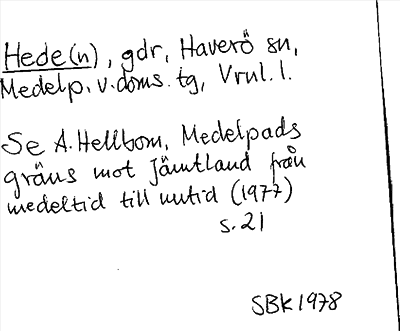 Hede(n), gdr, Haverö sn,
Medelp. v. doms. tg, Vrnl. l.
Se A. Hellbom, Medelpads
gräns mot Jämtland från
medeltid till nutid (1977)
s. 21
SBK 1978